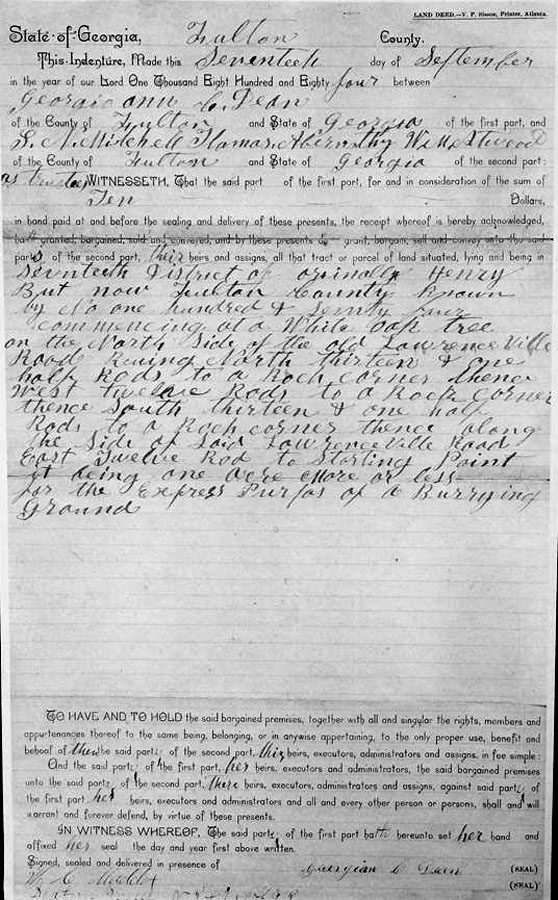 LAND DEED.—V. P. Sisson, Printer, Atlanta.
State of Georgia, Fulton County.
This Indenture, Made this Seventeeth day of September
in the year of our Lord One Thousand Eight Hundred and Eighty four between
Georgia ann C. Dean
of the County of Fulton and State of Georgia of the first part, and
S. N. Mitchell Thomas Abernathy W. M. Atwood
of the County of Fulton and State of Georgia of the second part:
as trustees WITNESSETH, That the said part of the first part, for and in consideration of the sum of
Ten Dollars,
in hand paid at and before the sealing and delivery of these presents, the receipt whereof is hereby acknowledged,
granted, bargained, sold and conveyed, and by these presents do grant, bargain, sell and convey unto the said
parts of the second part, their heirs and assigns, all that tract or parcel of land situated, lying and being in
Seventeeth District of originally Henry
But now Fulton County known
by No one hundred & Seventy four
commencing at a White oak tree
on the North Side of the old Lawrenceville
Road Runing North thirteen & one
half Rods to a Rock corner thence
West twelve Rods to a Rock corner
thence South thirteen & one half
Rods to a Rock corner thence along
the Side of Said Lawrenceville Road
East Twelve Rod to Starting Point
it being one acre more or less
for the Express Purpos of a Burrying
Ground
TO HAVE AND TO HOLD the said bargained premises, together with all and singular the rights, members and
appurtenances thereof to the same being, belonging, or in anywise appertaining, to the only proper use, benefit and
behoof of them the said party of the second part, heirs, executors, administrators and assigns, in fee simple:
And the said party of the first part, her heirs, executors and administrators, the said bargained premises
unto the said party of the second part, there heirs, executors, administrators and assigns, against said party of
the first part her heirs, executors and administrators and all and every other person or persons, shall and will
warrant and forever defend, by virtue of these presents.
IN WITNESS WHEREOF, The said party of the first part hath hereunto set her hand and
affixed her seal the day and year first above written.
Signed, sealed and delivered in presence of Georgian C Dean (SEAL)
W. C. Maddox (SEAL)